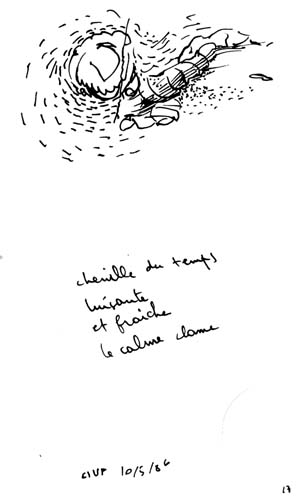 chenille du temps
luisante
et fraîche
le calme clame
10/5/86
17